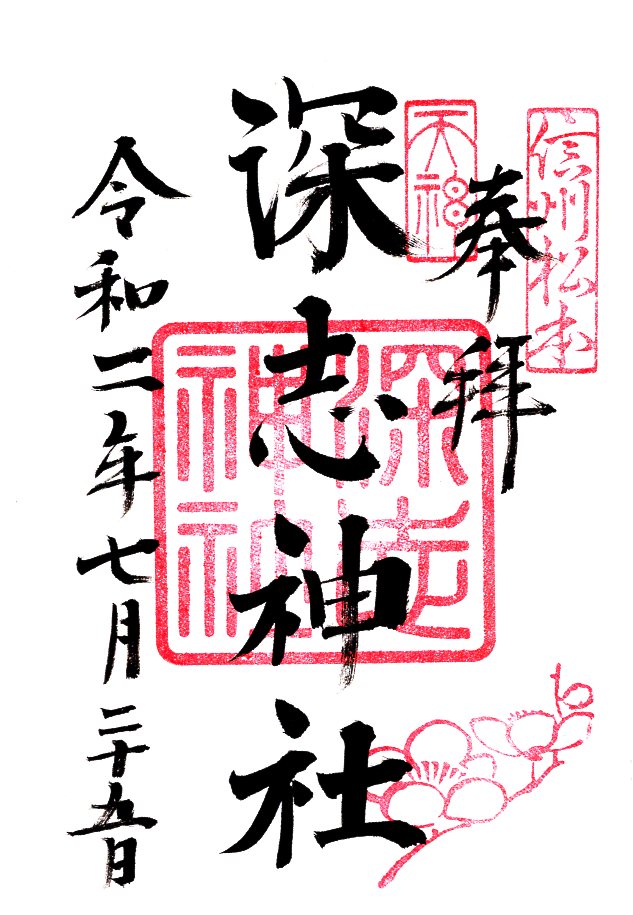 信州松本
奉拝
天神
深志神社
深志神社
令和二年七月二十五日